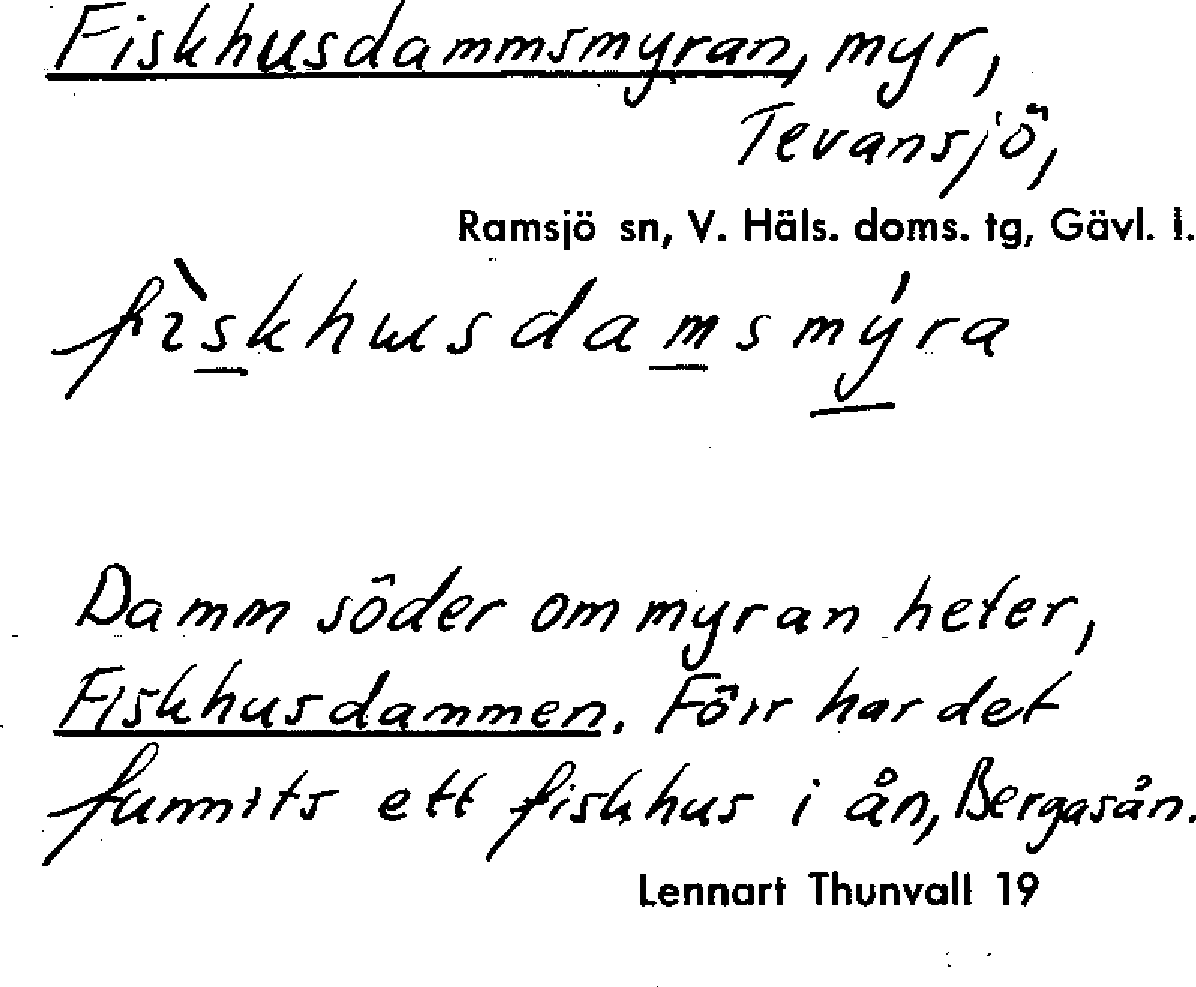 Fiskhusdammsmyran, myr,
Tevansjö,
Ramsjö sn, V. Häls. doms. tg, Gävl. l.
fı̀skhɯsdamsmýra
Damm söder om myran heter,
Fiskhusdammen. Förr har det
funnits ett fiskhus i ån, Bergasån.
Lennart Thunvall 19